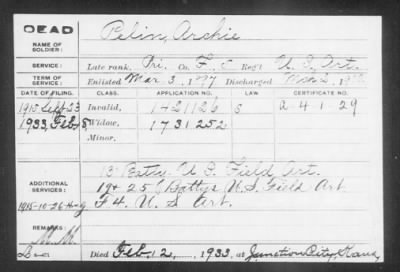 DEAD
NAME OF SOLDIER: Pelin, Archie
SERVICE: Late rank, Pri. Co. F, 5 Reg't U.S. Art.
TERM OF SERVICE: Enlisted Mar. 3, 1897 Discharged Mar. 2,
DATE OF FILING. CLASS. APPLICATION NO. LAW CERTIFICATE NO.
1915 Sept 23 Invalid, 1421126 S
1933 Feb Widow, 1731252
Minor.
ADDITIONAL SERVICES: 13 Batry. U S Field Art.
19 & 25 Battys U.S. Field Art
1915-10-26 F 4. U. S Art.
REMARKS:
Died Feb. 12, 1933 at Junction City, Kans.